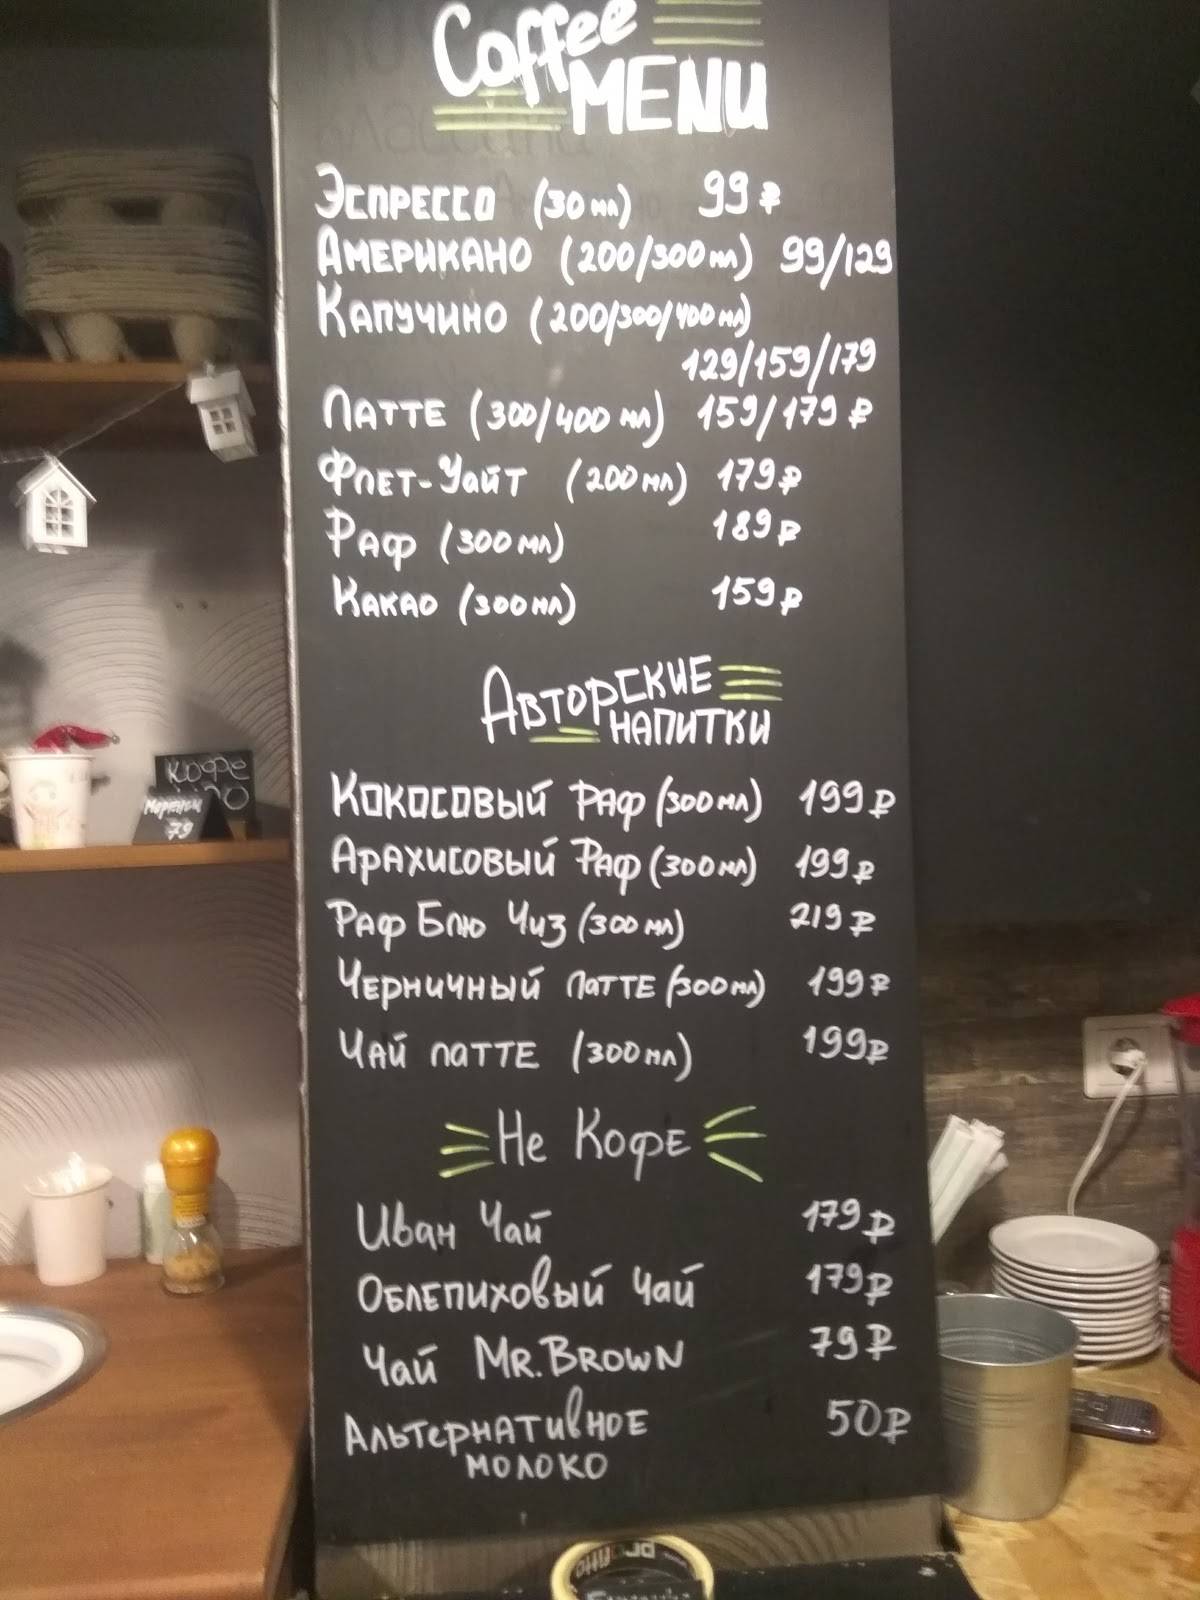 Coffee
MENU
Эспрессо (30 мл) 99₽
Американо (200/300мл) 99/129
Капучино (200/300/400мл)
129/159/179
Латте (300/400 мл) 159/179₽
Флет-Уайт (200мл) 179₽
Раф (300мл) 189₽
Какао (300мл) 159₽
Авторские
напитки
Кокосовый раф (300мл) 199₽
Арахисовый Раф (300мл) 199₽
Раф Блю Чиз (300мл) 219₽
Черничный латте (300мл) 199₽
Чай латте (300мл) 199₽
Не Кофе
Иван Чай 179₽
Облепиховый Чай 179₽
Чай Mr. Brown 79₽
Альтернативное 50₽
молоко
Кофе
79